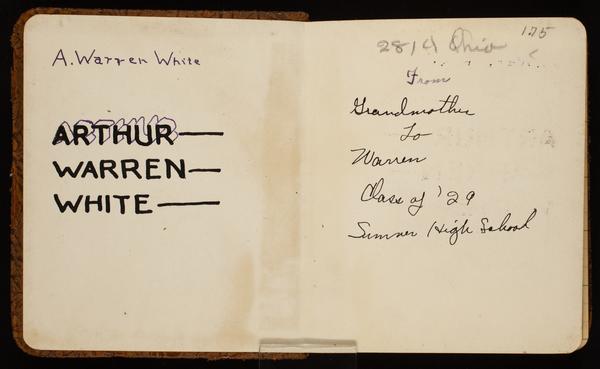 A. Warren White
ARTHUR—
WARREN—
WHITE—
175
2814 Ohio
From
Grandmother
To
Warren
Class of '29
Sumner High School